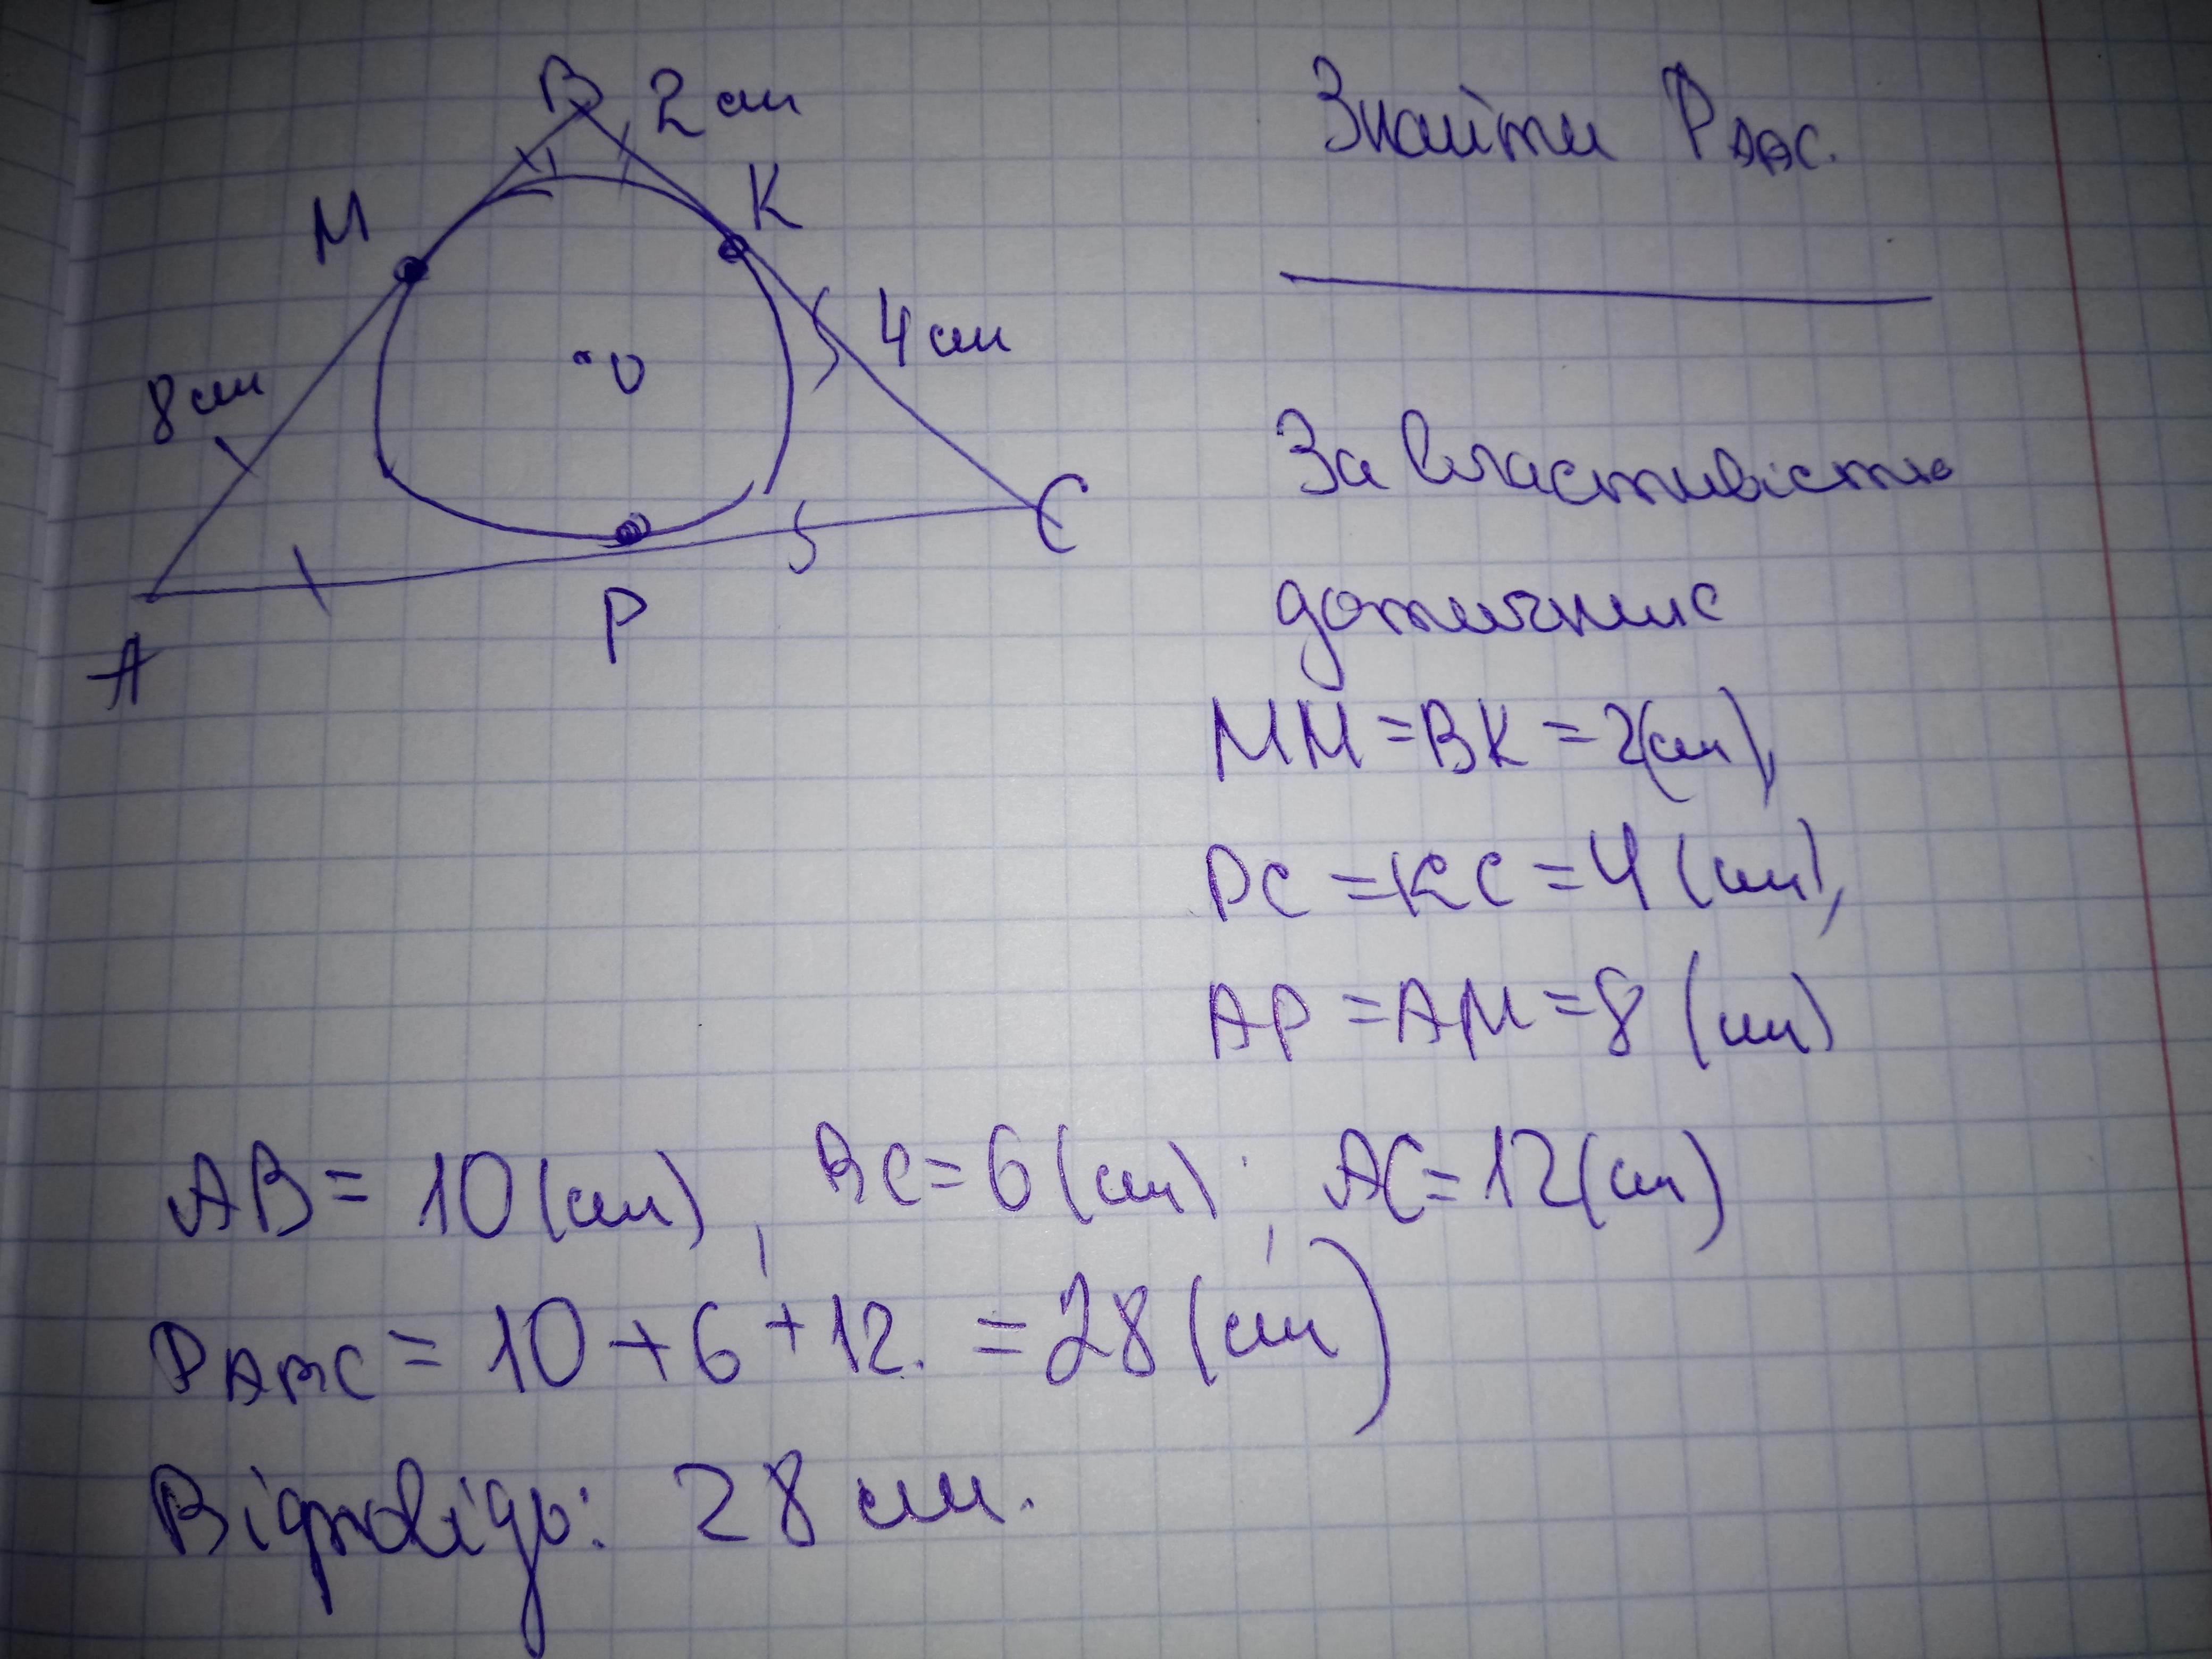 B 2 см
M
K
8 см
O
4 см
C
A
P
Знайти P ABC.
За властивістю
дотичних
MM = BK = 2(см),
PC = KC = 4 (см),
AP = AM = 8 (см)
AB = 10 (см), BC = 6 (см); AC = 12 (см)
P ABC = 10 + 6 + 12. = 28 (см)
Відповідь: 28 см.